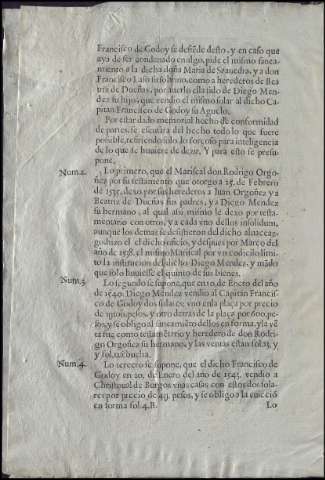 Francisco de Godoy se desiste desto, y en caso que
aya de ser condenado en algo, pide el mismo sanea-
miento a la dicha doña Maria de Saauedra, y a don
Francisco Lasso su hermano, como a herederos de Bea
triz de Dueñas, por auerlo ella sido de Diego Men-
dez su hijo, que vendio el mismo solar al dicho Ca-
pitan Francisco de Godoy su aguelo.
Por estar dado memorial hecho de conformidad
de partes, se escusara del hecho todo lo que fuere
possible, refiriendo solo lo forçoso para inteligencia
de lo que se huuiere de dezir, Y para esto se presu-
pone.
Num. 2. Lo primero, que el Mariscal don Rodrigo Orgo-
ñez por su testamento que otorgò a 25. de Febrero
de 1535. dexo por sus herederos a Juan Orgoñez y a
Beatriz de Dueñas sus padres, y a Diego Mendez
su hermano, al qual assi mismo le dexò por testa-
mentario con otros, y a cada vno dellos insolidum,
aunque los demas se desistieron del dicho albaceaz-
go hizo el el dicho oficio, y despues por Março del
año de 1538. el mismo Mariscal por vn codicilo limi-
to la institucion del dicho Diego Mendez, y mãdò
que solo huuiesse el quinto de sus bienes.
Num. 3. Lo segundo se supone, que en 10. de Enero del año
de 1540. Diego Mendez vendio al Capitan Francis-
co de Godoy dos solares, vno en la plaça por precio
de pesos, y otro detras de la plaça por 600. pe-
sos, y se obligò al saneamiẽto dellos en forma, y la vẽ
ta fue como testamẽtario y heredero de don Rodri-
go Orgoñez su hermano, y las ventas estan fol. 23. y
y fol. 0. buelta.
Num. 4. Lo tercero se supone, que el dicho Francisco de
Godoy en 20. de Enero del año de 1543. vendio a
Christoual de Burgos vnas casas con estos dos sola-
res por precio de pesos, y se obligo a la euicciõ
en forma fol. 4. B.
Lo